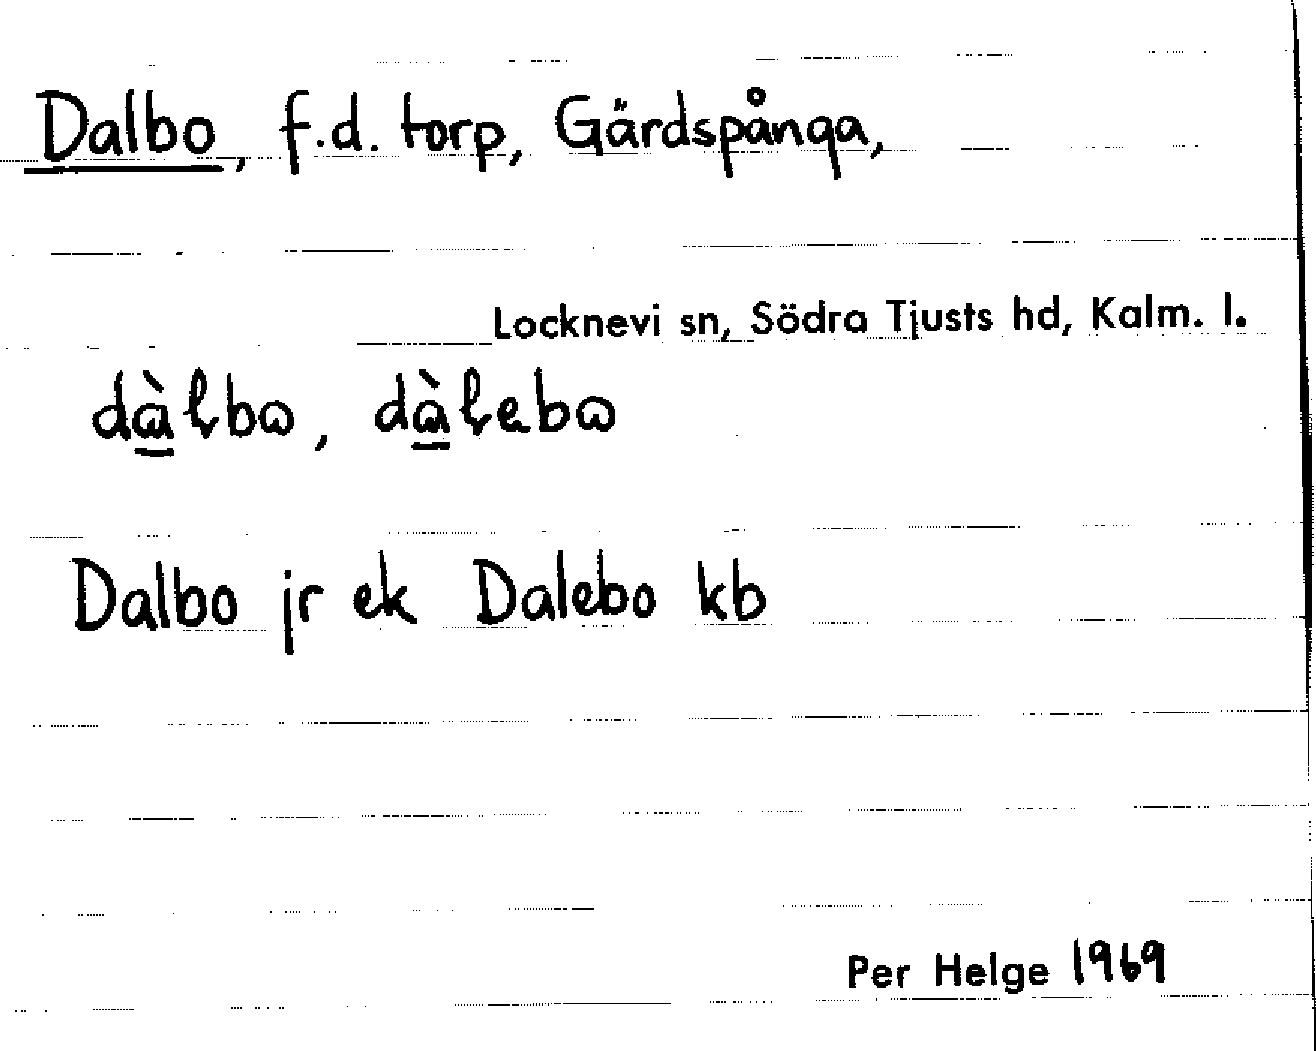 Dalbo, f.d. torp, Gärdspånga,
Locknevi sn, Södra Tjusts hd, Kalm. l.
Dalbo jr ek Dalebo kb
Per Helge 1969